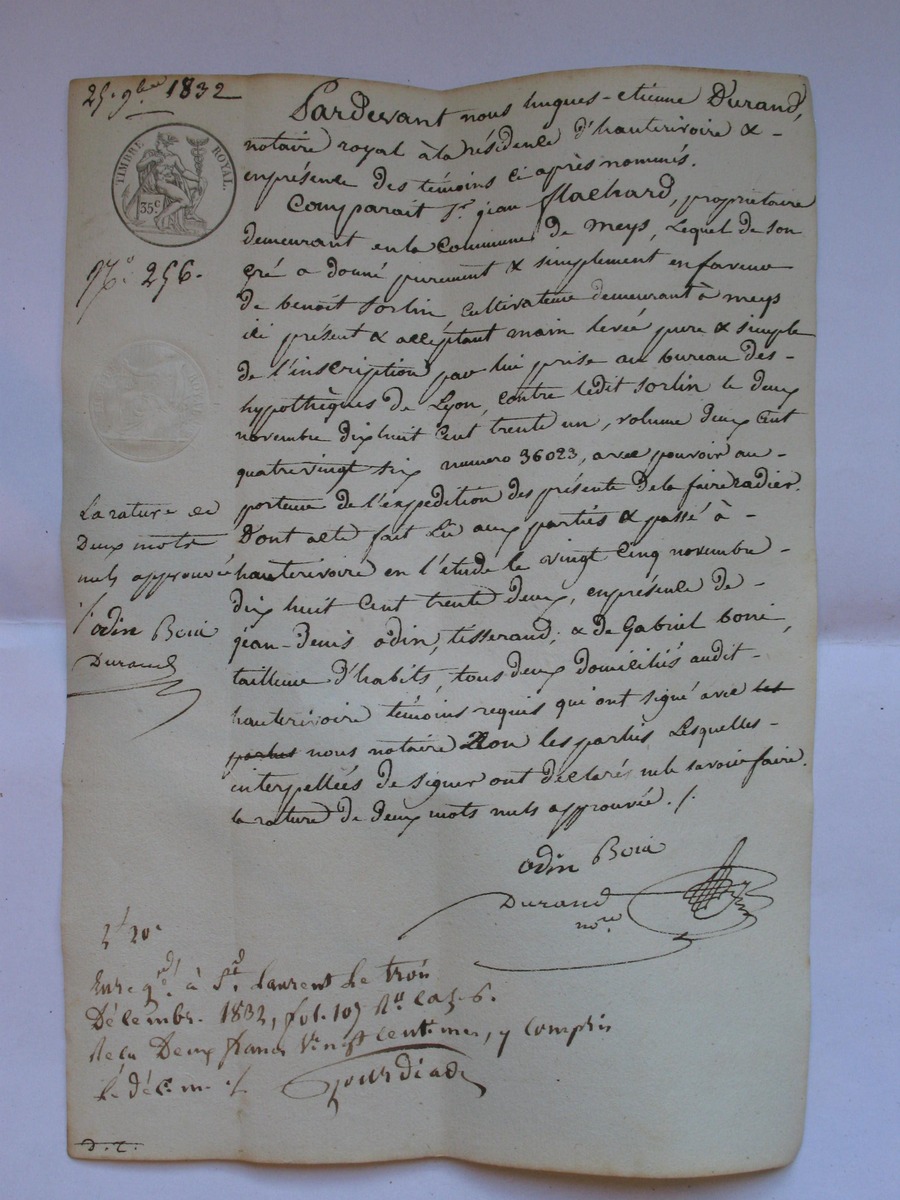 25. 9bre 1832
TIMBRE ROYAL.
35c
No. 256.
Pardevant nous hugues-etienne Durand,
notaire royal à la résidence d'hauterivoire &-
enprésence des témoins ci après nommés.
Comparait Sr. jean Machard, propriétaire
demeurant en la Commune de meys, Lequel de son
gré a donné purement & simplement enfaveur
de benoît Sorlin cultivateur demeurant à meys
ici présent & acceptant main levée pure & simple
de l'inscription par lui prise au bureau des-
hypothèques de Lyon, contre ledit Sorlin le deux
novembre dix huit Cent trente un, volume deux Cent
quatrevingt six numero 36023, avec pouvoir au-
porteur de l'expedition des présente de la faire radier.
D'ont acte fait Lû aux partiés & passé à-
hauterivoire en l'étude le vingt Cinq novembre-
dix huit Cent trente deux, enprésence de-
jean-Denis odin, tisserand; & de Gabriel boui,
tailleur d'habits, tous deux domiciliés audit-
hauterivoire témoins requis qui ont signé avec les
parties nous notaire Non les partiés Lesquelles-
interpellées de signer ont déclarés ne le savoir faire.
la rature de deux mots nuls approuvée. /.
La rature de
Deux mots
nuls approuvée
/.
odin Boui
Durand
odin Boui
Durand
nore
2f 20c
Enregé. à St. Laurent Le trois
Décembr. 1832, fol. 105 Ro. Cas. 6.
Recu Deux francs Vingt centimes, y compris
Le décime /.
Gourdiad
D. C.